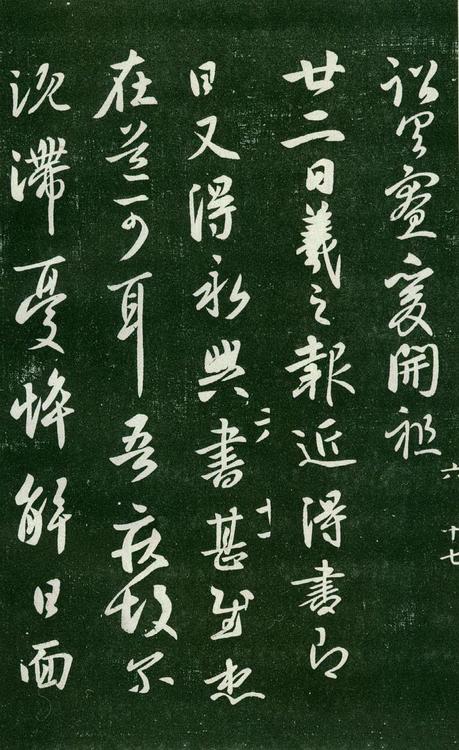 開祖
六 十七
廿二日羲之報近得書即
日又得永興書甚慰想
十一
在道可耳吾疾故爾
沈滯憂悴解日面